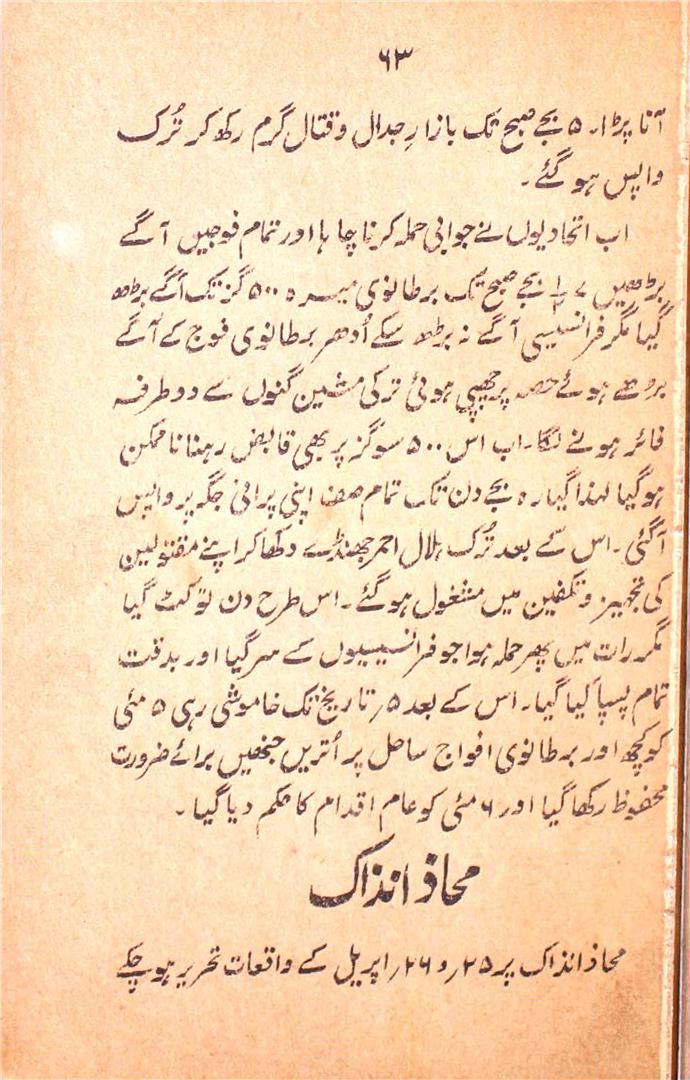 ۶۳
آنا پڑا۔ ۵ بجے صبح تک بازارِ جدال و قتال گرم رکھ کر تُرک
واپس ہو گئے۔
اب اتحادیوں نے جوابی حملہ کرنا چاہا اور تمام فوجیں آگے
بڑھیں ۷ ۱/۲ بجے صبح تک برطانوی میسرہ ۵۰۰ گز تک آگے بڑھ
گیا مگر فرانسیسی آگے نہ بڑھ سکے اُدھر برطانوی فوج کے آگے
بڑھے ہوئے حصہ پر چھپی ہوئی ترکی مشین گنوں سے دو طرفہ
فائر ہونے لگا۔ اب اس ۵۰۰ سو گز پر بھی قابض رہنا ناممکن
ہو گیا لہذا گیارہ بجے دن تک تمام صف اپنی پرانی جگہ پر واپس
آگئی۔ اس کے بعد تُرک ہلال احمر جھنڈے دکھا کر اپنے مقتولین
کی تجہیز و تکفین میں مشغول ہو گئے۔ اس طرح دن تو کٹ گیا
مگر رات میں پھر حملہ ہوا جو فرانسیسیوں کے سر گیا اور بدقت
تمام پسپا کیا گیا۔ اس کے بعد ۵؍ تاریخ تک خاموشی رہی ۵ مئی
کو کچھ اور برطانوی افواج ساحل پر اُتریں جنھیں برائے ضرورت
محفوظ رکھا گیا اور ۶ مئی کو عام اقدام کا حکم دیا گیا۔
محاذ انذاک
محاذ انذاک پر ۲۵؍ و ۲۶؍ اپریل کے واقعات تحریر ہو چکے